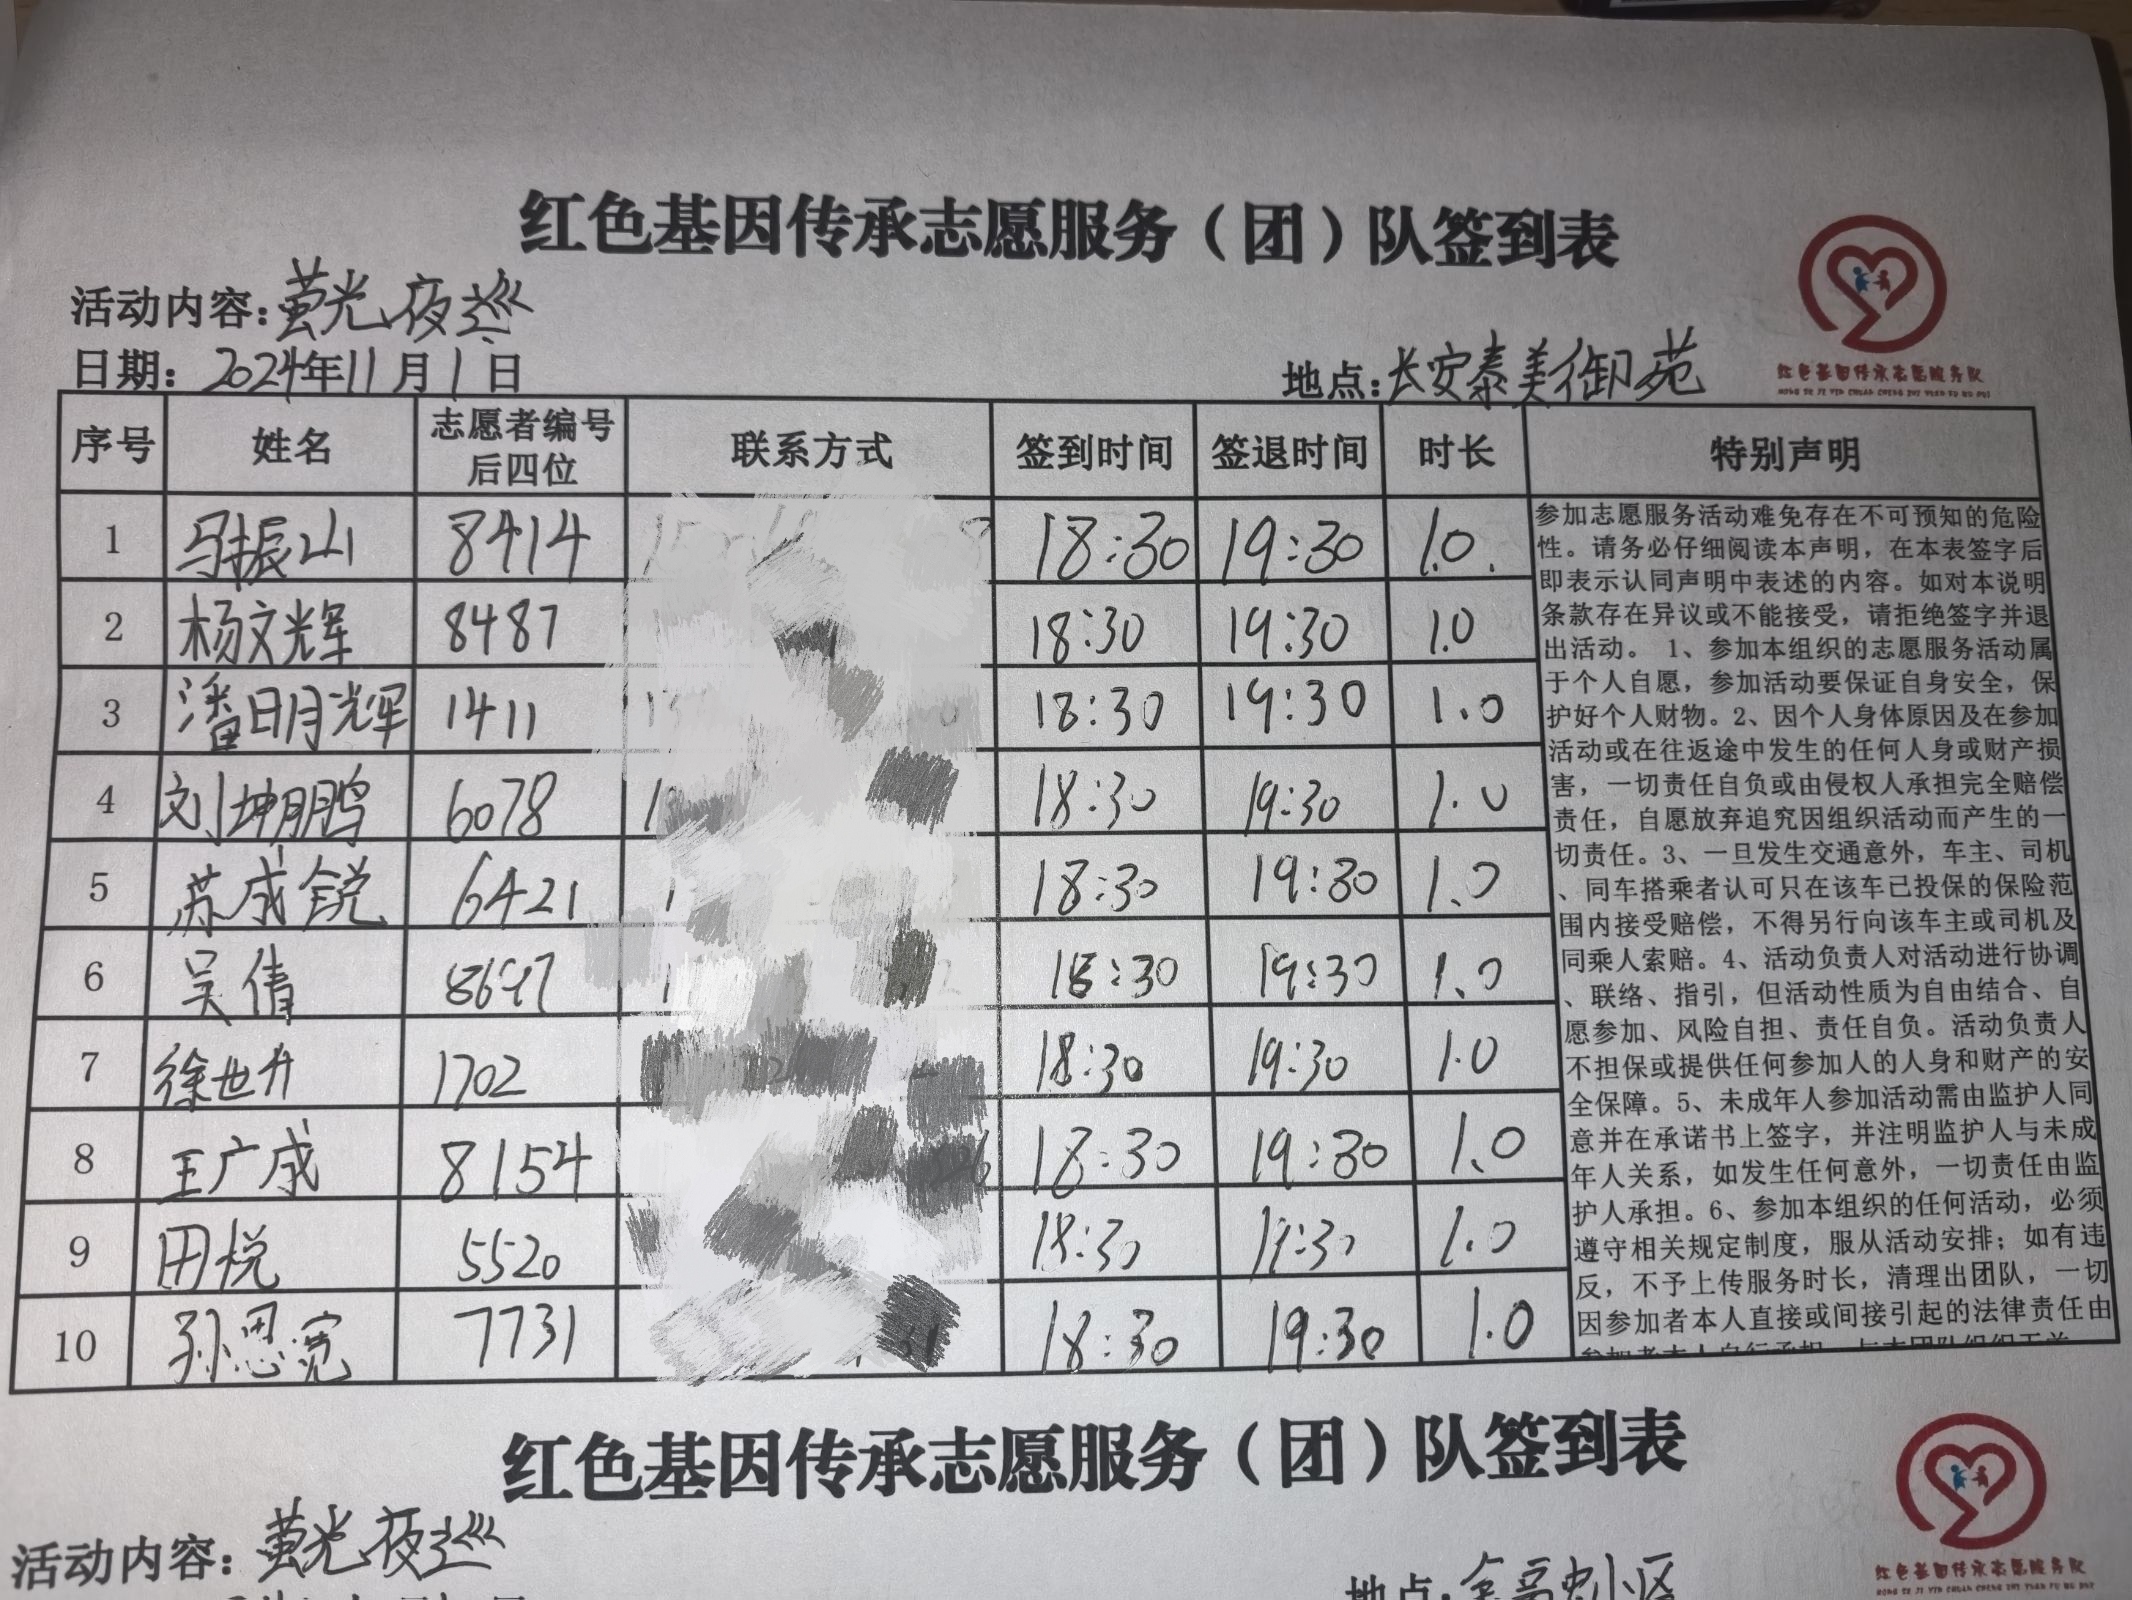 红色基因传承志愿服务（团）队签到表
活动内容：萤光夜巡
日期：2024年11月1日
地点：长安泰美御苑
红色基因传承志愿服务队
HONG SE JI YIN CHUAN CHENG ZHI YUAN FU WU DUI
序号 姓名 志愿者编号后四位 联系方式 签到时间 签退时间 时长 特别声明
1 马振山 8414 18:30 19:30 1.0
2 杨文辉 8487 18:30 19:30 1.0
3 潘明辉 1411 18:30 19:30 1.0
4 刘坤鹏 6078 18:30 19:30 1.0
5 苏成锐 6421 18:30 19:30 1.0
6 吴倩 8697 18:30 19:30 1.0
7 徐世升 1702 18:30 19:30 1.0
8 王广成 8154 18:30 19:30 1.0
9 田悦 5520 18:30 19:30 1.0
10 孙思宽 7731 18:30 19:30 1.0
参加志愿服务活动难免存在不可预知的危险
性。请务必仔细阅读本声明，在本表签字后
即表示认同声明中表述的内容。如对本说明
条款存在异议或不能接受，请拒绝签字并退
出活动。 1、参加本组织的志愿服务活动属
于个人自愿，参加活动要保证自身安全，保
护好个人财物。2、因个人身体原因及在参加
活动或在往返途中发生的任何人身或财产损
害，一切责任自负或由侵权人承担完全赔偿
责任，自愿放弃追究因组织活动而产生的一
切责任。3、一旦发生交通意外，车主、司机
、同车搭乘者认可只在该车已投保的保险范
围内接受赔偿，不得另行向该车主或司机及
同乘人索赔。4、活动负责人对活动进行协调
、联络、指引，但活动性质为自由结合、自
愿参加、风险自担、责任自负。活动负责人
不担保或提供任何参加人的人身和财产的安
全保障。5、未成年人参加活动需由监护人同
意并在承诺书上签字，并注明监护人与未成
年人关系，如发生任何意外，一切责任由监
护人承担。6、参加本组织的任何活动，必须
遵守相关规定制度，服从活动安排；如有违
反，不予上传服务时长，清理出团队，一切
因参加者本人直接或间接引起的法律责任由
红色基因传承志愿服务（团）队签到表
活动内容：萤光夜巡
地点：
红色基因传承志愿服务队
HONG SE JI YIN CHUAN CHENG ZHI YUAN FU WU DUI